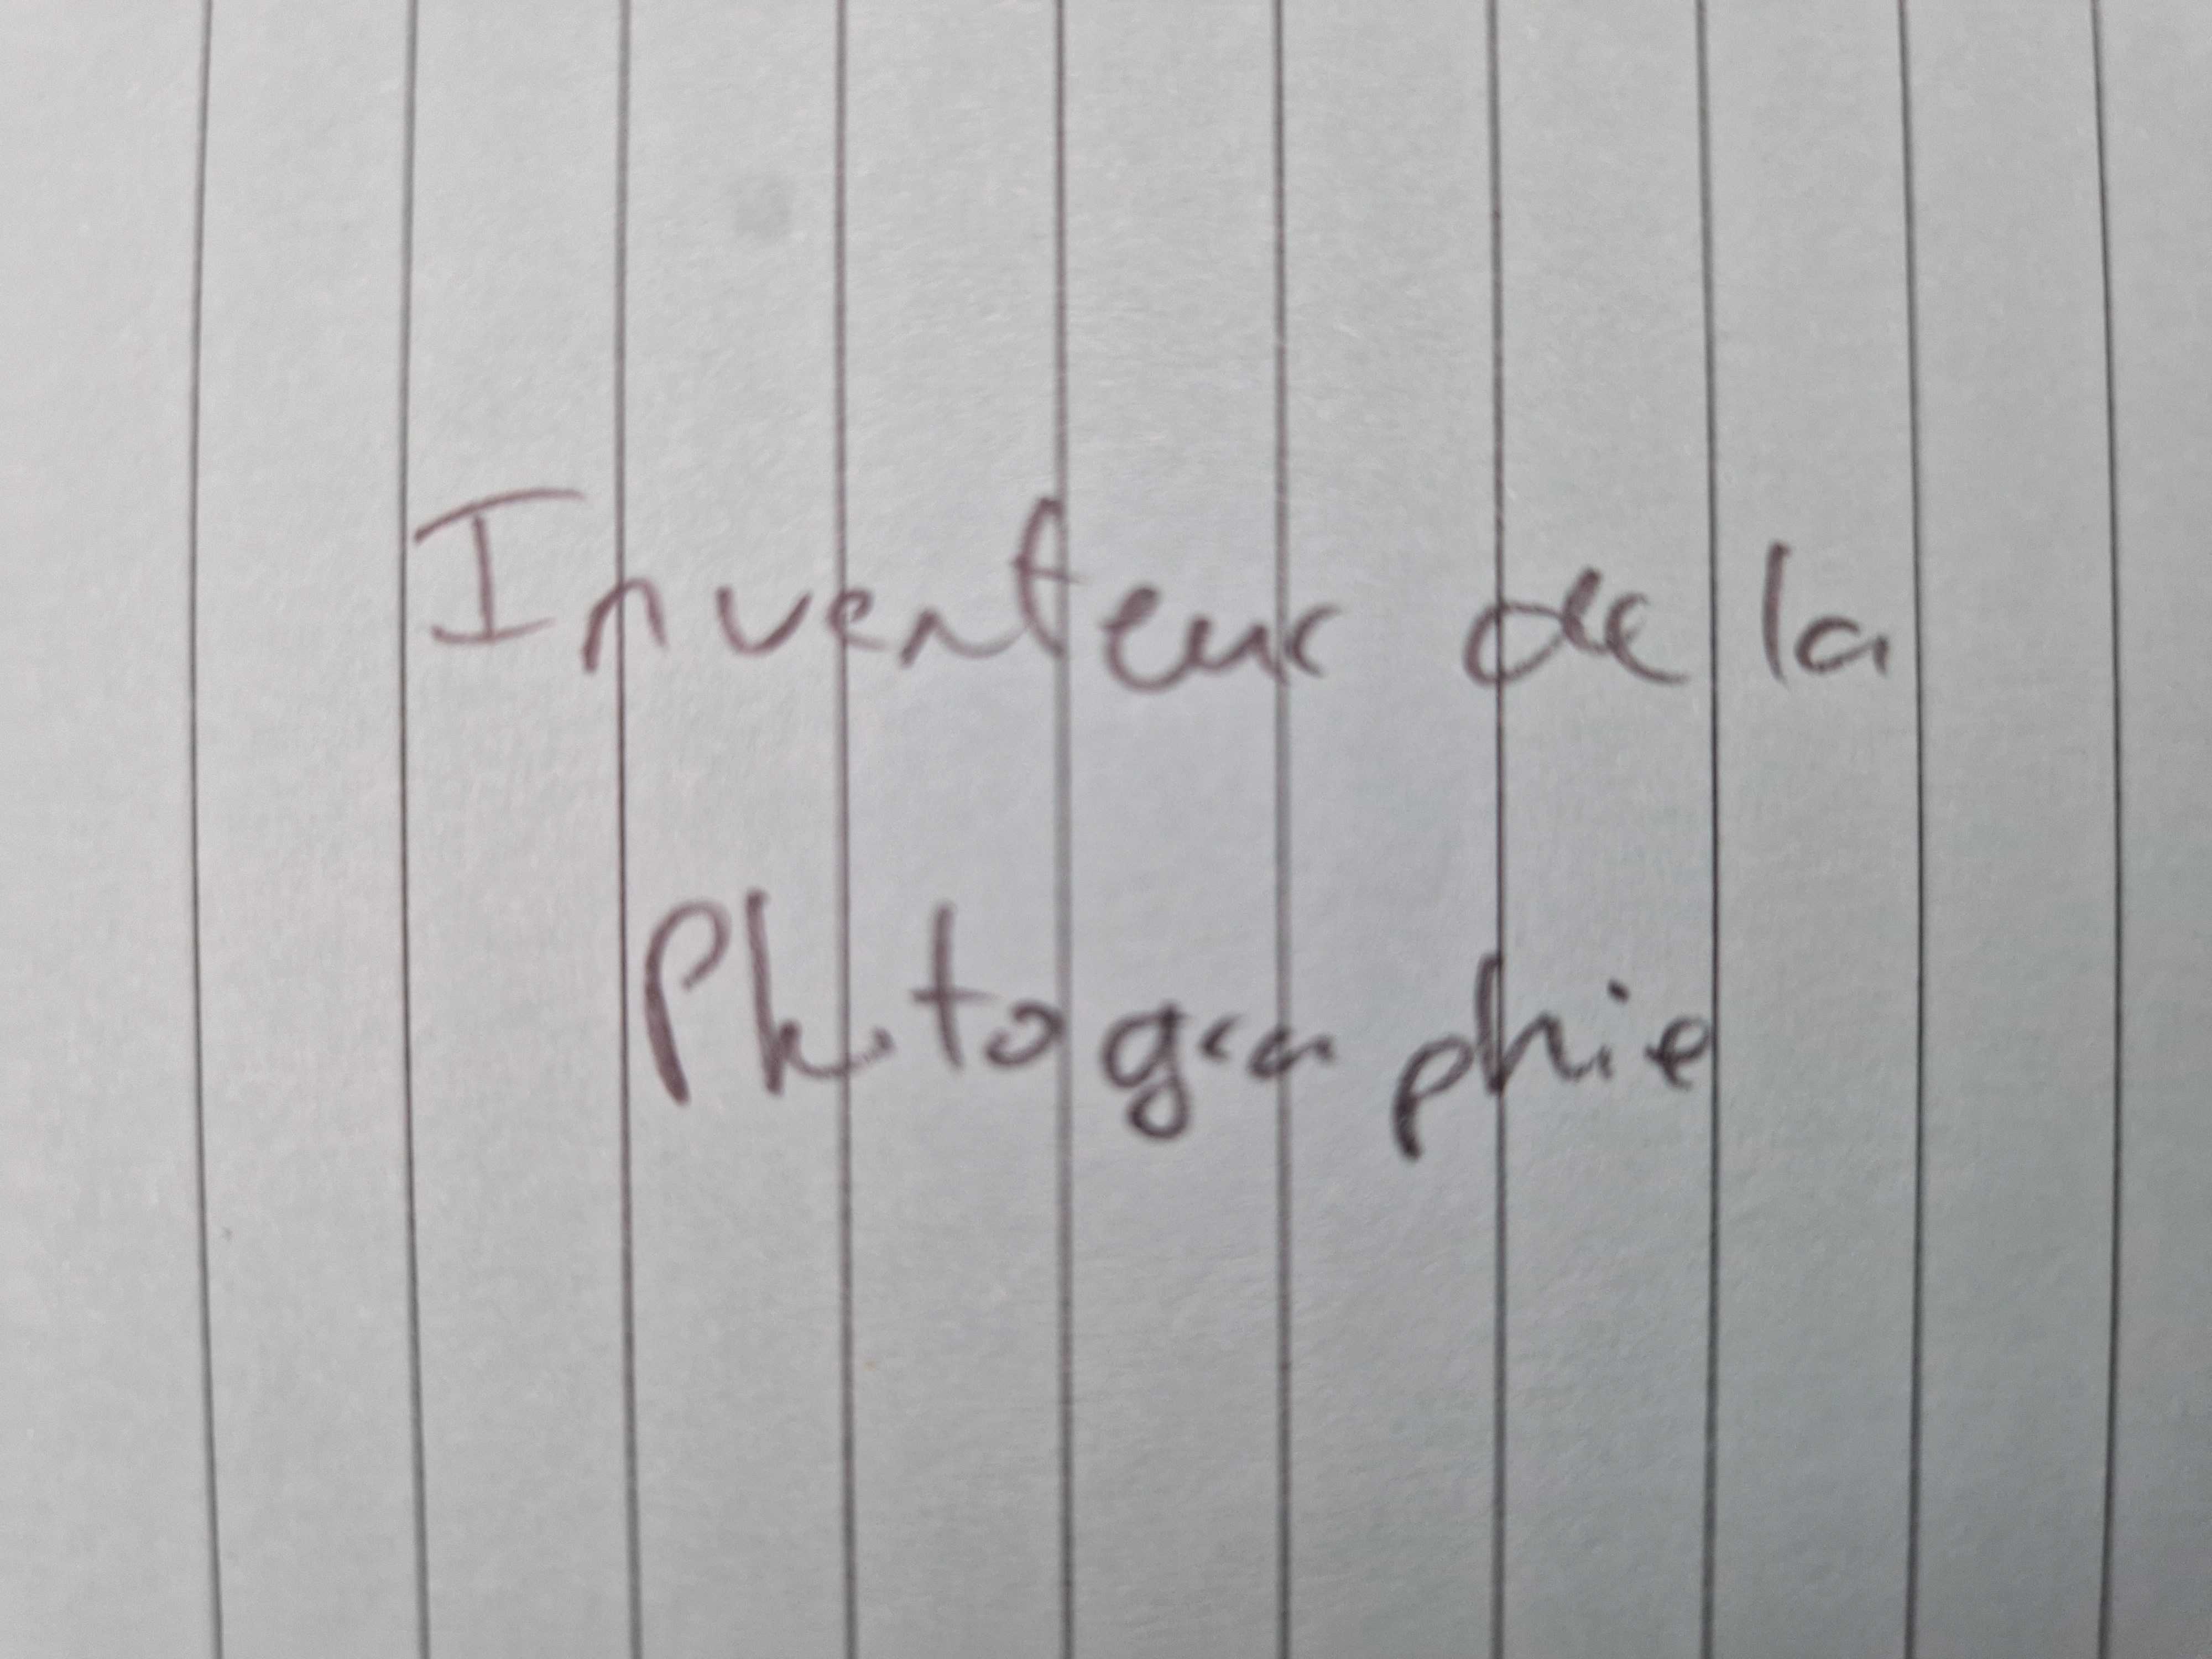 Inventeur de la
Photographie